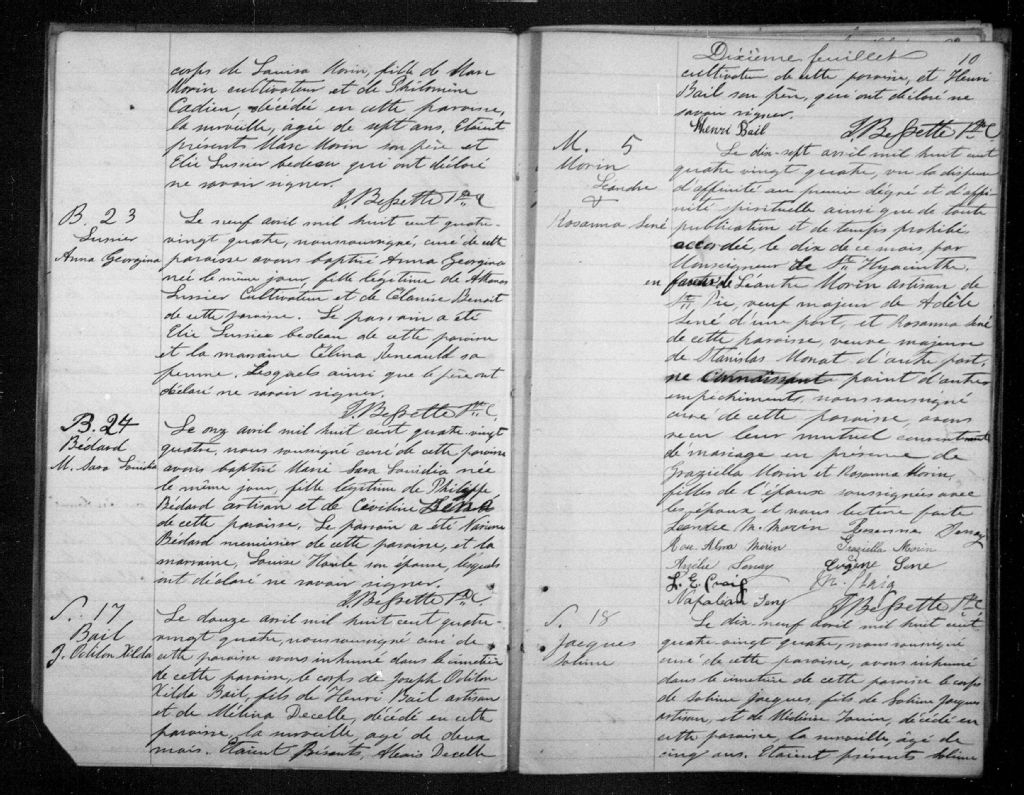 corps de Louisa Morin, fille de Marc
Morin cultivateur et de Philomine
Cadieu, décédée en cette paroisse,
la surveille, âgée de sept ans. Etaient
présents Marc Morin son père et
Elie Lussier bedeau qui ont déclaré
ne savoir signer.
J. Bessette Ptre C
B. 23
Lussier
Anna Georgina
Le neuf avril mil huit cent quatre-
vingt quatre, nous soussigné, curé de cette
paroisse avons baptisé Anna Georgina
née le même jour, fille légitime de
Lussier Cultivateur et de Benoit
de cette paroisse. Le parrain a été
Elie Lussier bedeau de cette paroisse
et la marraine Célina sa
femme. Lesquels ainsi que le père ont
déclaré ne savoir signer.
J. Bessette Ptre C.
B. 24
Bédard
M. Sara
Le onz avril mil huit cent quatre-vingt
quatre, nous soussigné curé de cette paroisse
avons baptisé Marie Sara née
le même jour, fille légitime de Philippe
Bédard artisan et de
de cette paroisse. Le parrain a été Narcisse
Bédard menuisier de cette paroisse, et la
marraine, Louise son épouse, lesquels
ont déclaré ne savoir signer.
J. Bessette Ptre C.
S. 17
Bail
J. Odilon Xilda
Le douze avril mil huit cent quatre-
vingt quatre, nous soussigné curé de
cette paroisse avons inhumé dans le cimetière
de cette paroisse, le corps de Joseph Odilon
Xilda Bail, fils de Henri Bail artisan
et de Mélina Decelle, décédé en cette
paroisse, la surveille, âgé de deux
mois. Etaient Présents, Alexis Decelle
Dixième feuillet 10
cultivateur de cette paroisse, et Henri
Bail son père, qui ont déclaré ne
savoir signer.
Henri Bail J. Bessette Ptre C
M. 5
Morin
Léandre
&
Rosanna Sené
Le dix-sept avril mil huit cent
quatre vingt quatre, vu la dispense
d'affinité au premier dégré et d'affi-
nité spirituelle ainsi que de toute
publication et de temps prohibé
accordée, le dix de ce mois, par
Monseigneur de St. Hyacinthe,
en faveur de Léandre Morin artisan de
St. Pie, veuf majeur de Adèle
Sené d'une part, et Rosanna Sené
de cette paroisse, veuve majeure
de Stanislas Monat d'autre part,
ne connaissant point d'autre
empêchement, nous soussigné
curé de cette paroisse, avons
reçu leur mutuel consentement
de mariage en présence de
Graziella Morin et Rosanna Morin,
filles de l'époux soussignées avec
les époux et nous lecture faite
Leandre M. Morin Rosanna
Rose Alma Morin Graziella Morin
Eugène Sene
L. E. Craig
Napoléon J. Bessette Ptre C.
S. 18
Jacques
Solime
Le dix neuf avril mil huit cent
quatre vingt quatre, nous soussigné
curé de cette paroisse, avons inhumé
dans le cimetière de cette paroisse le corps
de Solime Jacques, fils de Solime Jacques
artisan, et de décédé en
cette paroisse, la surveille, âgé de
cinq ans. Etaient présents Solime